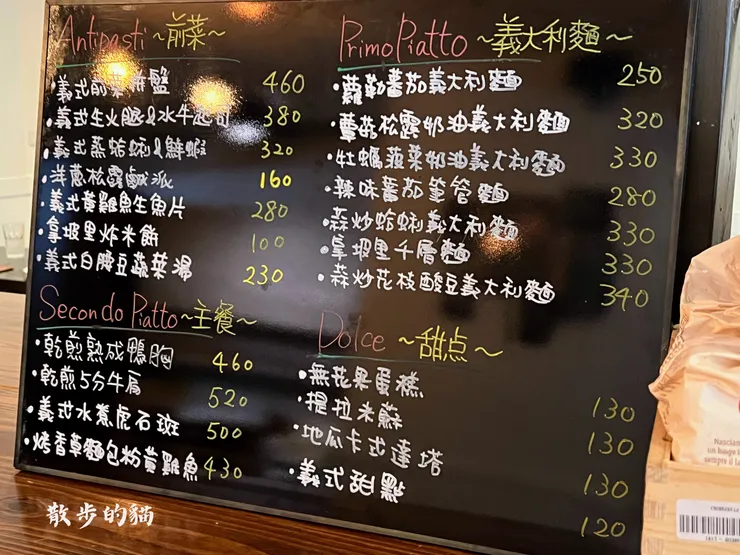 Antipasti ~前菜~
·義式前菜拼盤 460
·義式生火腿&水牛起司 380
·義式蒸蛤蜊&鮮蝦 320
·洋蔥松露鹹派 160
·義式黃雞魚生魚片 280
·拿坡里炸米餅 100
·義式白腰豆蔬菜湯 230
Secondo Piatto~主餐~
·乾煎熟成鴨胸 460
·乾煎5分牛肩 520
·義式水煮虎石斑 500
·烤香草麵包粉黃雞魚 430
Primo Piatto ~義大利麵~
·蘿勒蕃茄義大利麵 250
·蘑菇松露奶油義大利麵 320
·牡蠣菠菜奶油義大利麵 330
·辣味蕃茄筆管麵 280
·蒜炒蛤蜊義大利麵 330
·拿坡里千層麵 330
·蒜炒花枝酸豆義大利麵 340
Dolce ~甜点~
·無花果蛋糕 130
·提拉米蘇 130
·地瓜卡式達塔 130
·義式甜點 120
散步的貓